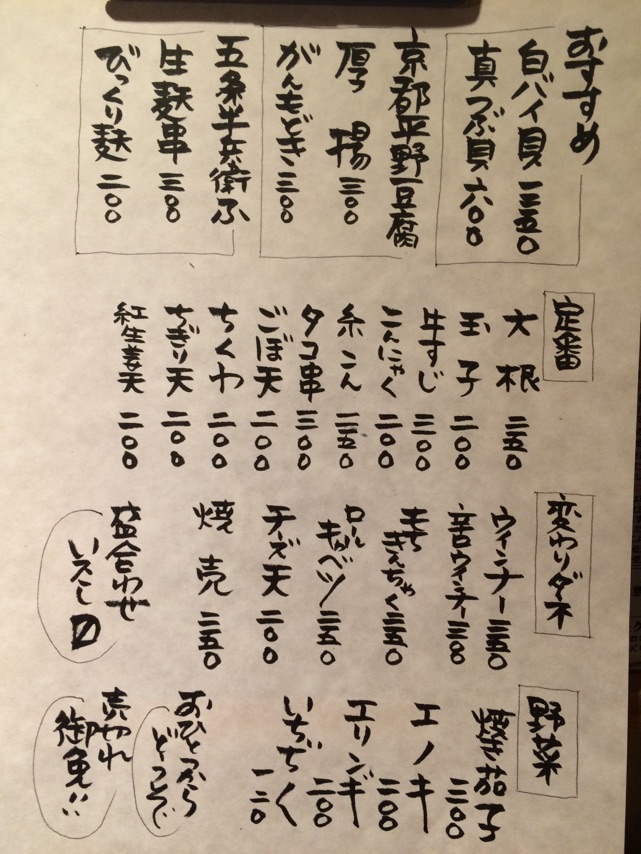 おすすめ
白バイ貝 三五〇
真つぶ貝 六〇〇
京都平野豆腐
厚揚 三〇〇
がんもどき 三〇〇
五条半兵衛ふ
生麩串 三〇〇
びっくり麩 二〇〇
定番
大根 二五〇
玉子 二〇〇
牛すじ 三〇〇
こんにゃく 二〇〇
糸こん 一五〇
タコ串 三〇〇
ごぼ天 二〇〇
ちくわ 二〇〇
ちぎり天 二〇〇
紅生姜天 二〇〇
変わりダネ
ウィンナー 三五〇
辛口ウィンナー 三〇〇
もちきんちゃく 三五〇
ロールキャベツ 三五〇
チーズ天 二〇〇
焼売 二五〇
盛合わせ
野菜
焼き茄子 三〇〇
エノキ 二〇〇
エリンギ 二〇〇
いちぢく
おひとつから
どうぞ
売切れ
御免!!